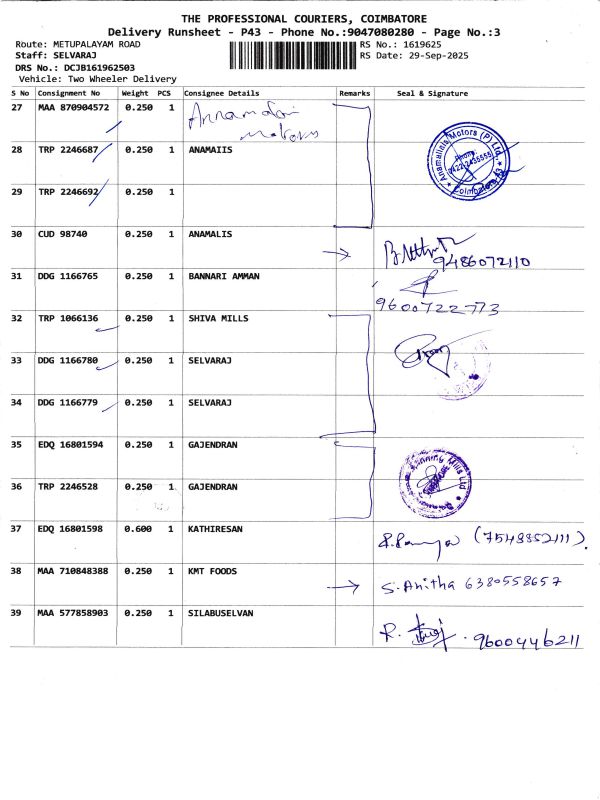 THE PROFESSIONAL COURIERS, COIMBATORE
Delivery Runsheet - P43 - Phone No.:9047080280 - Page No.:3
Route: METUPALAYAM ROAD RS No.: 1619625
Staff: SELVARAJ RS Date: 29-Sep-2025
DRS No.: DCJB161962503
Vehicle: Two Wheeler Delivery
S No Consignment No Weight PCS Consignee Details Remarks Seal & Signature
27 MAA 870904572 0.250 1
28 TRP 2246687 0.250 1 ANAMAIIS
29 TRP 2246692 0.250 1
30 CUD 98740 0.250 1 ANAMALIS
9486072110
31 DDG 1166765 0.250 1 BANNARI AMMAN
9600722773
32 TRP 1066136 0.250 1 SHIVA MILLS
33 DDG 1166780 0.250 1 SELVARAJ
34 DDG 1166779 0.250 1 SELVARAJ
35 EDQ 16801594 0.250 1 GAJENDRAN
36 TRP 2246528 0.250 1 GAJENDRAN
37 EDQ 16801598 0.600 1 KATHIRESAN
38 MAA 710848388 0.250 1 KMT FOODS S. Anitha 6380558657
39 MAA 577858903 0.250 1 SILABUSELVAN
R. 9600446211